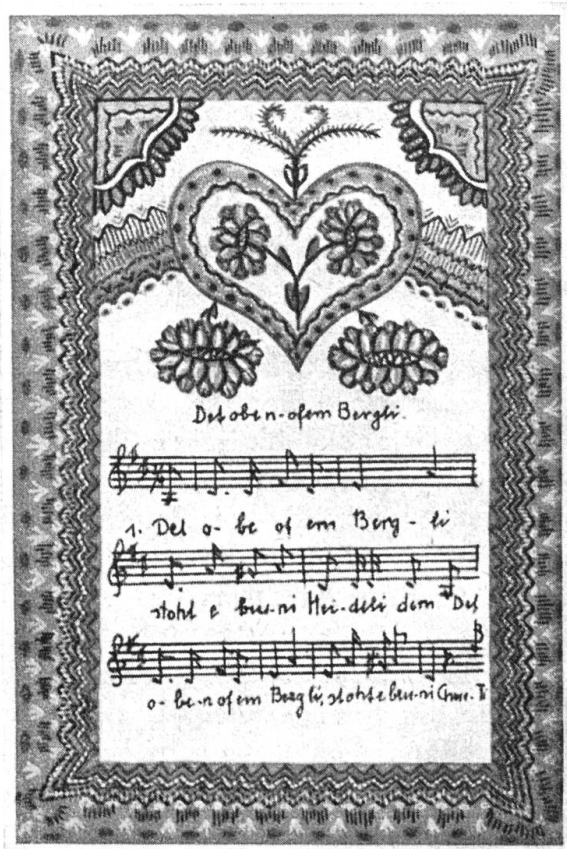 Det obe n-ofem Bergli.
1. Det o-be of em Berg-li
stoht e bru-ni dem Det
o-be-n ofem Bergli, stoht e bru-ni